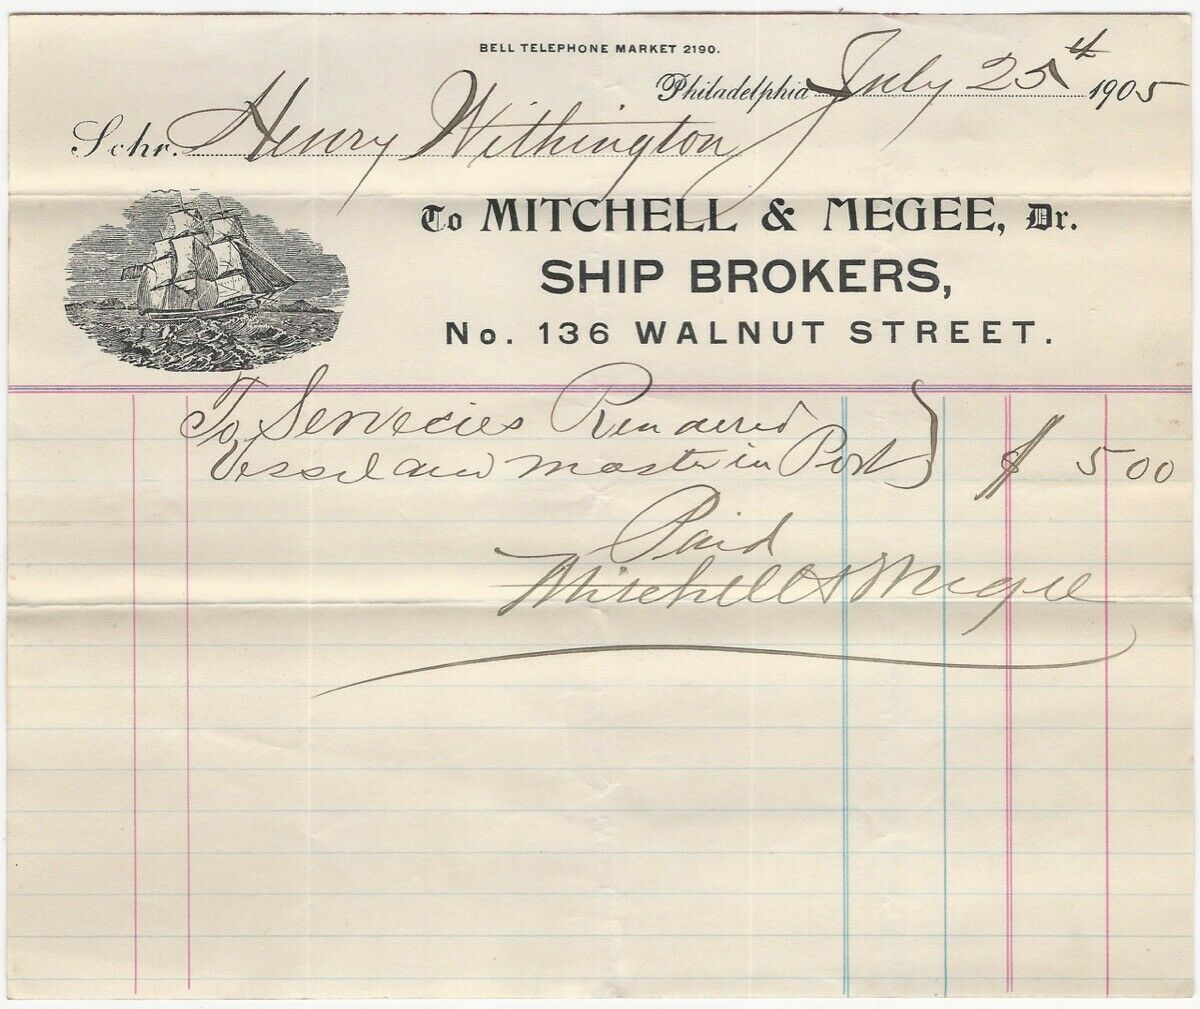 BELL TELEPHONE MARKET 2190.
Philadelphia July 25th 1905
Schr. Henry Withington
To MITCHELL & MEGEE, Dr.
SHIP BROKERS,
No. 136 WALNUT STREET.
To Servecies Rendered
Vessel and master in Port } $ 5 00
Paid
Mitchell & Megee